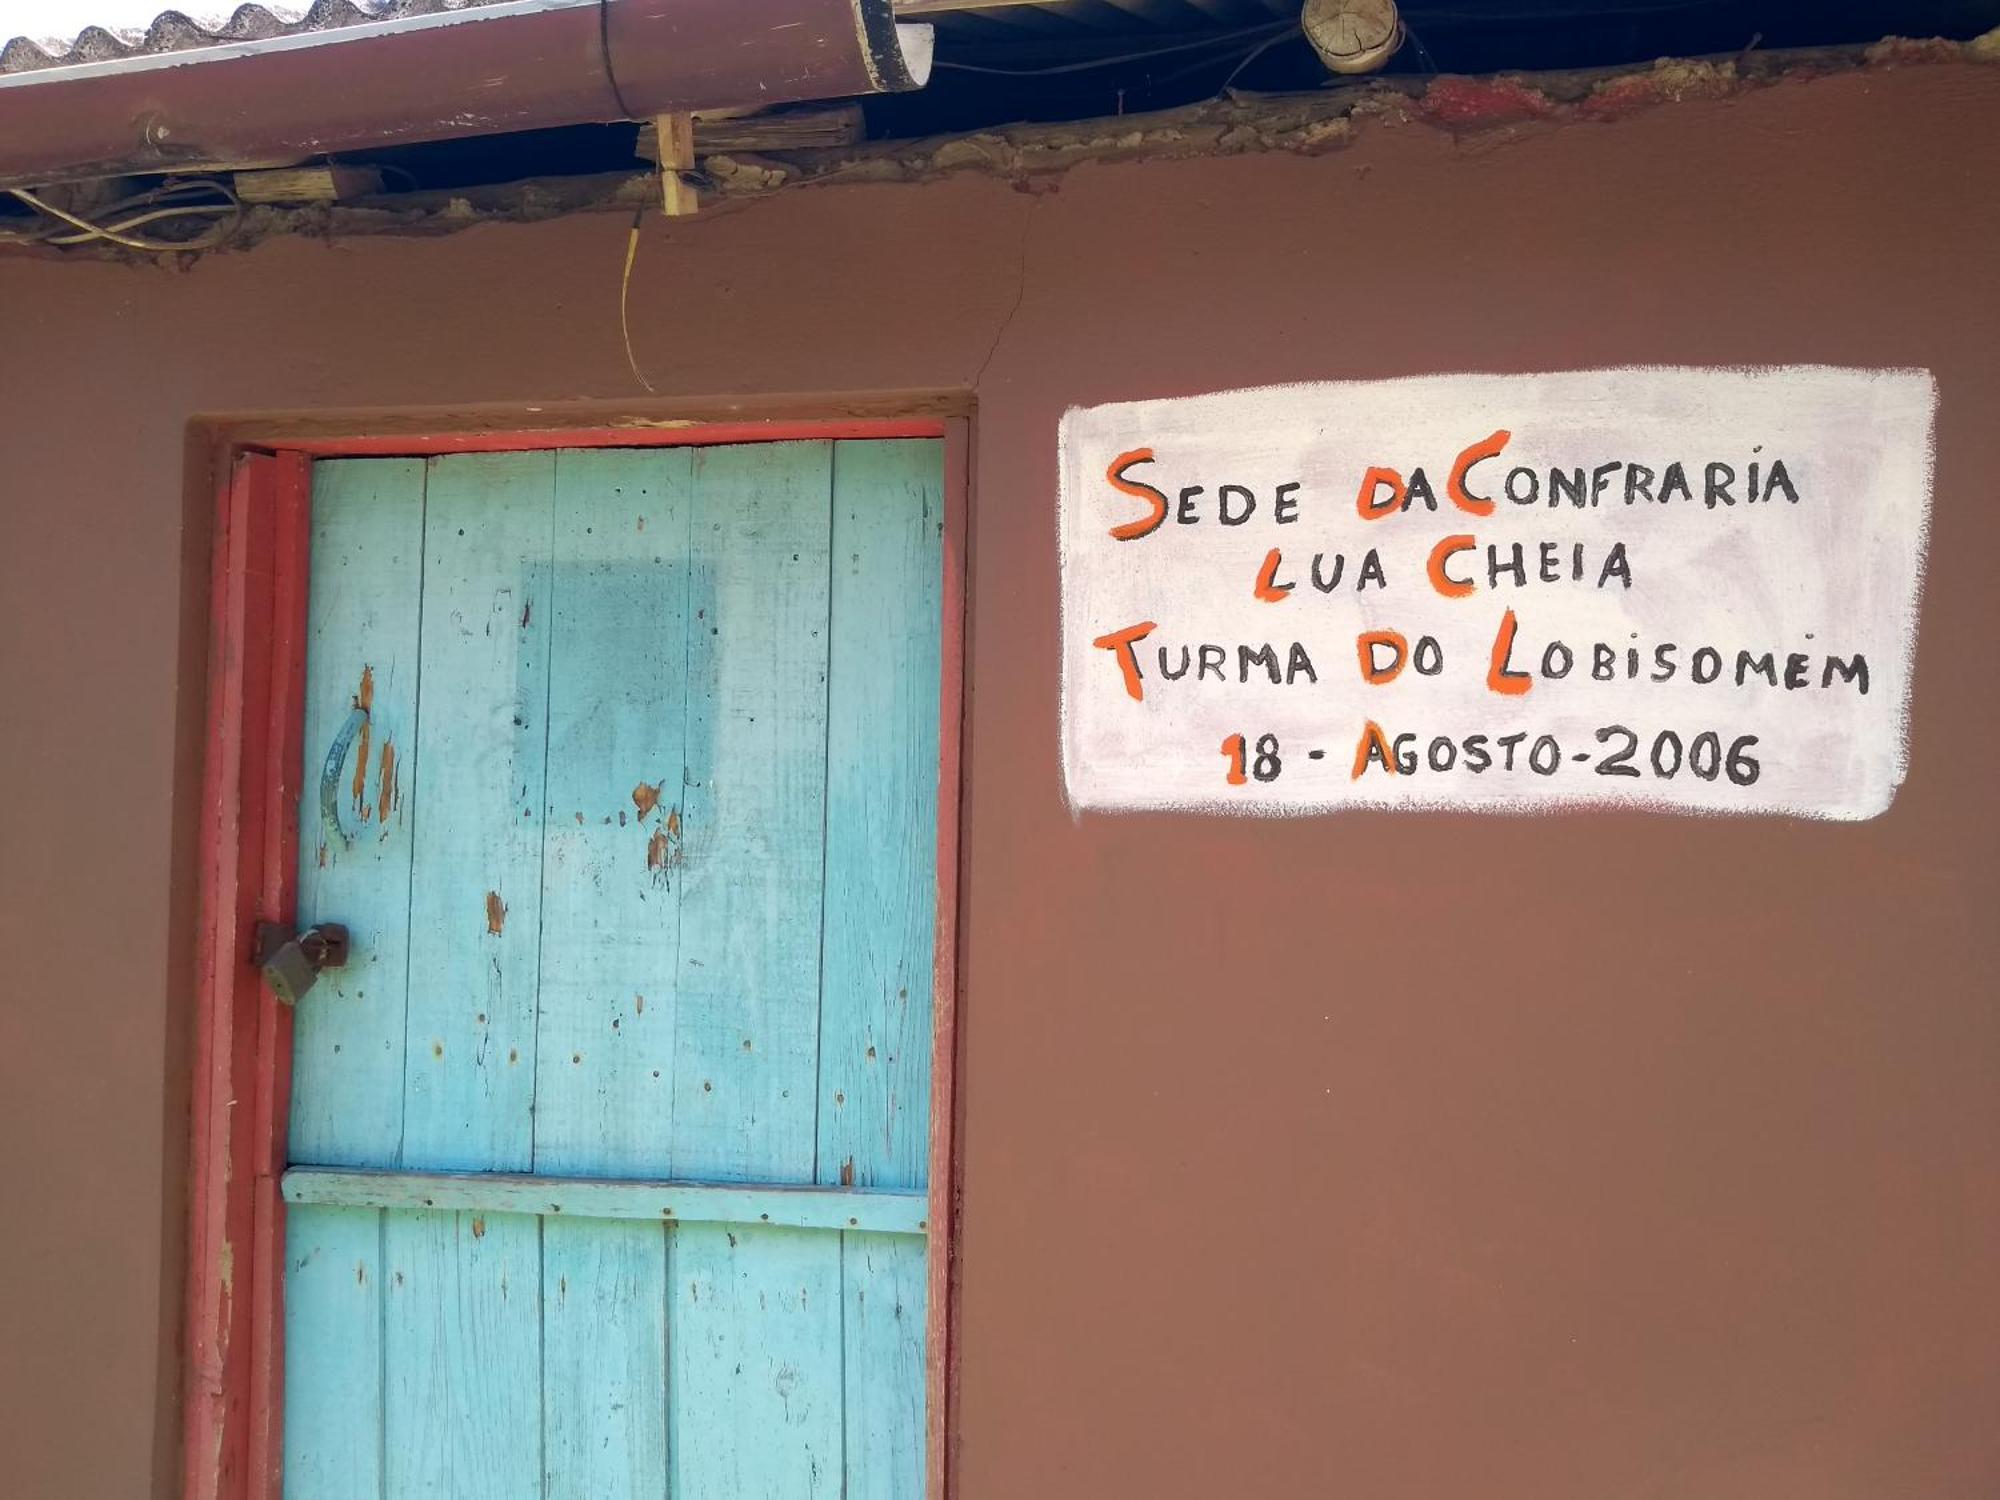 SEDE DA CONFRARIA
LUA CHEIA
TURMA DO LOBISOMEM
18 - AGOSTO - 2006